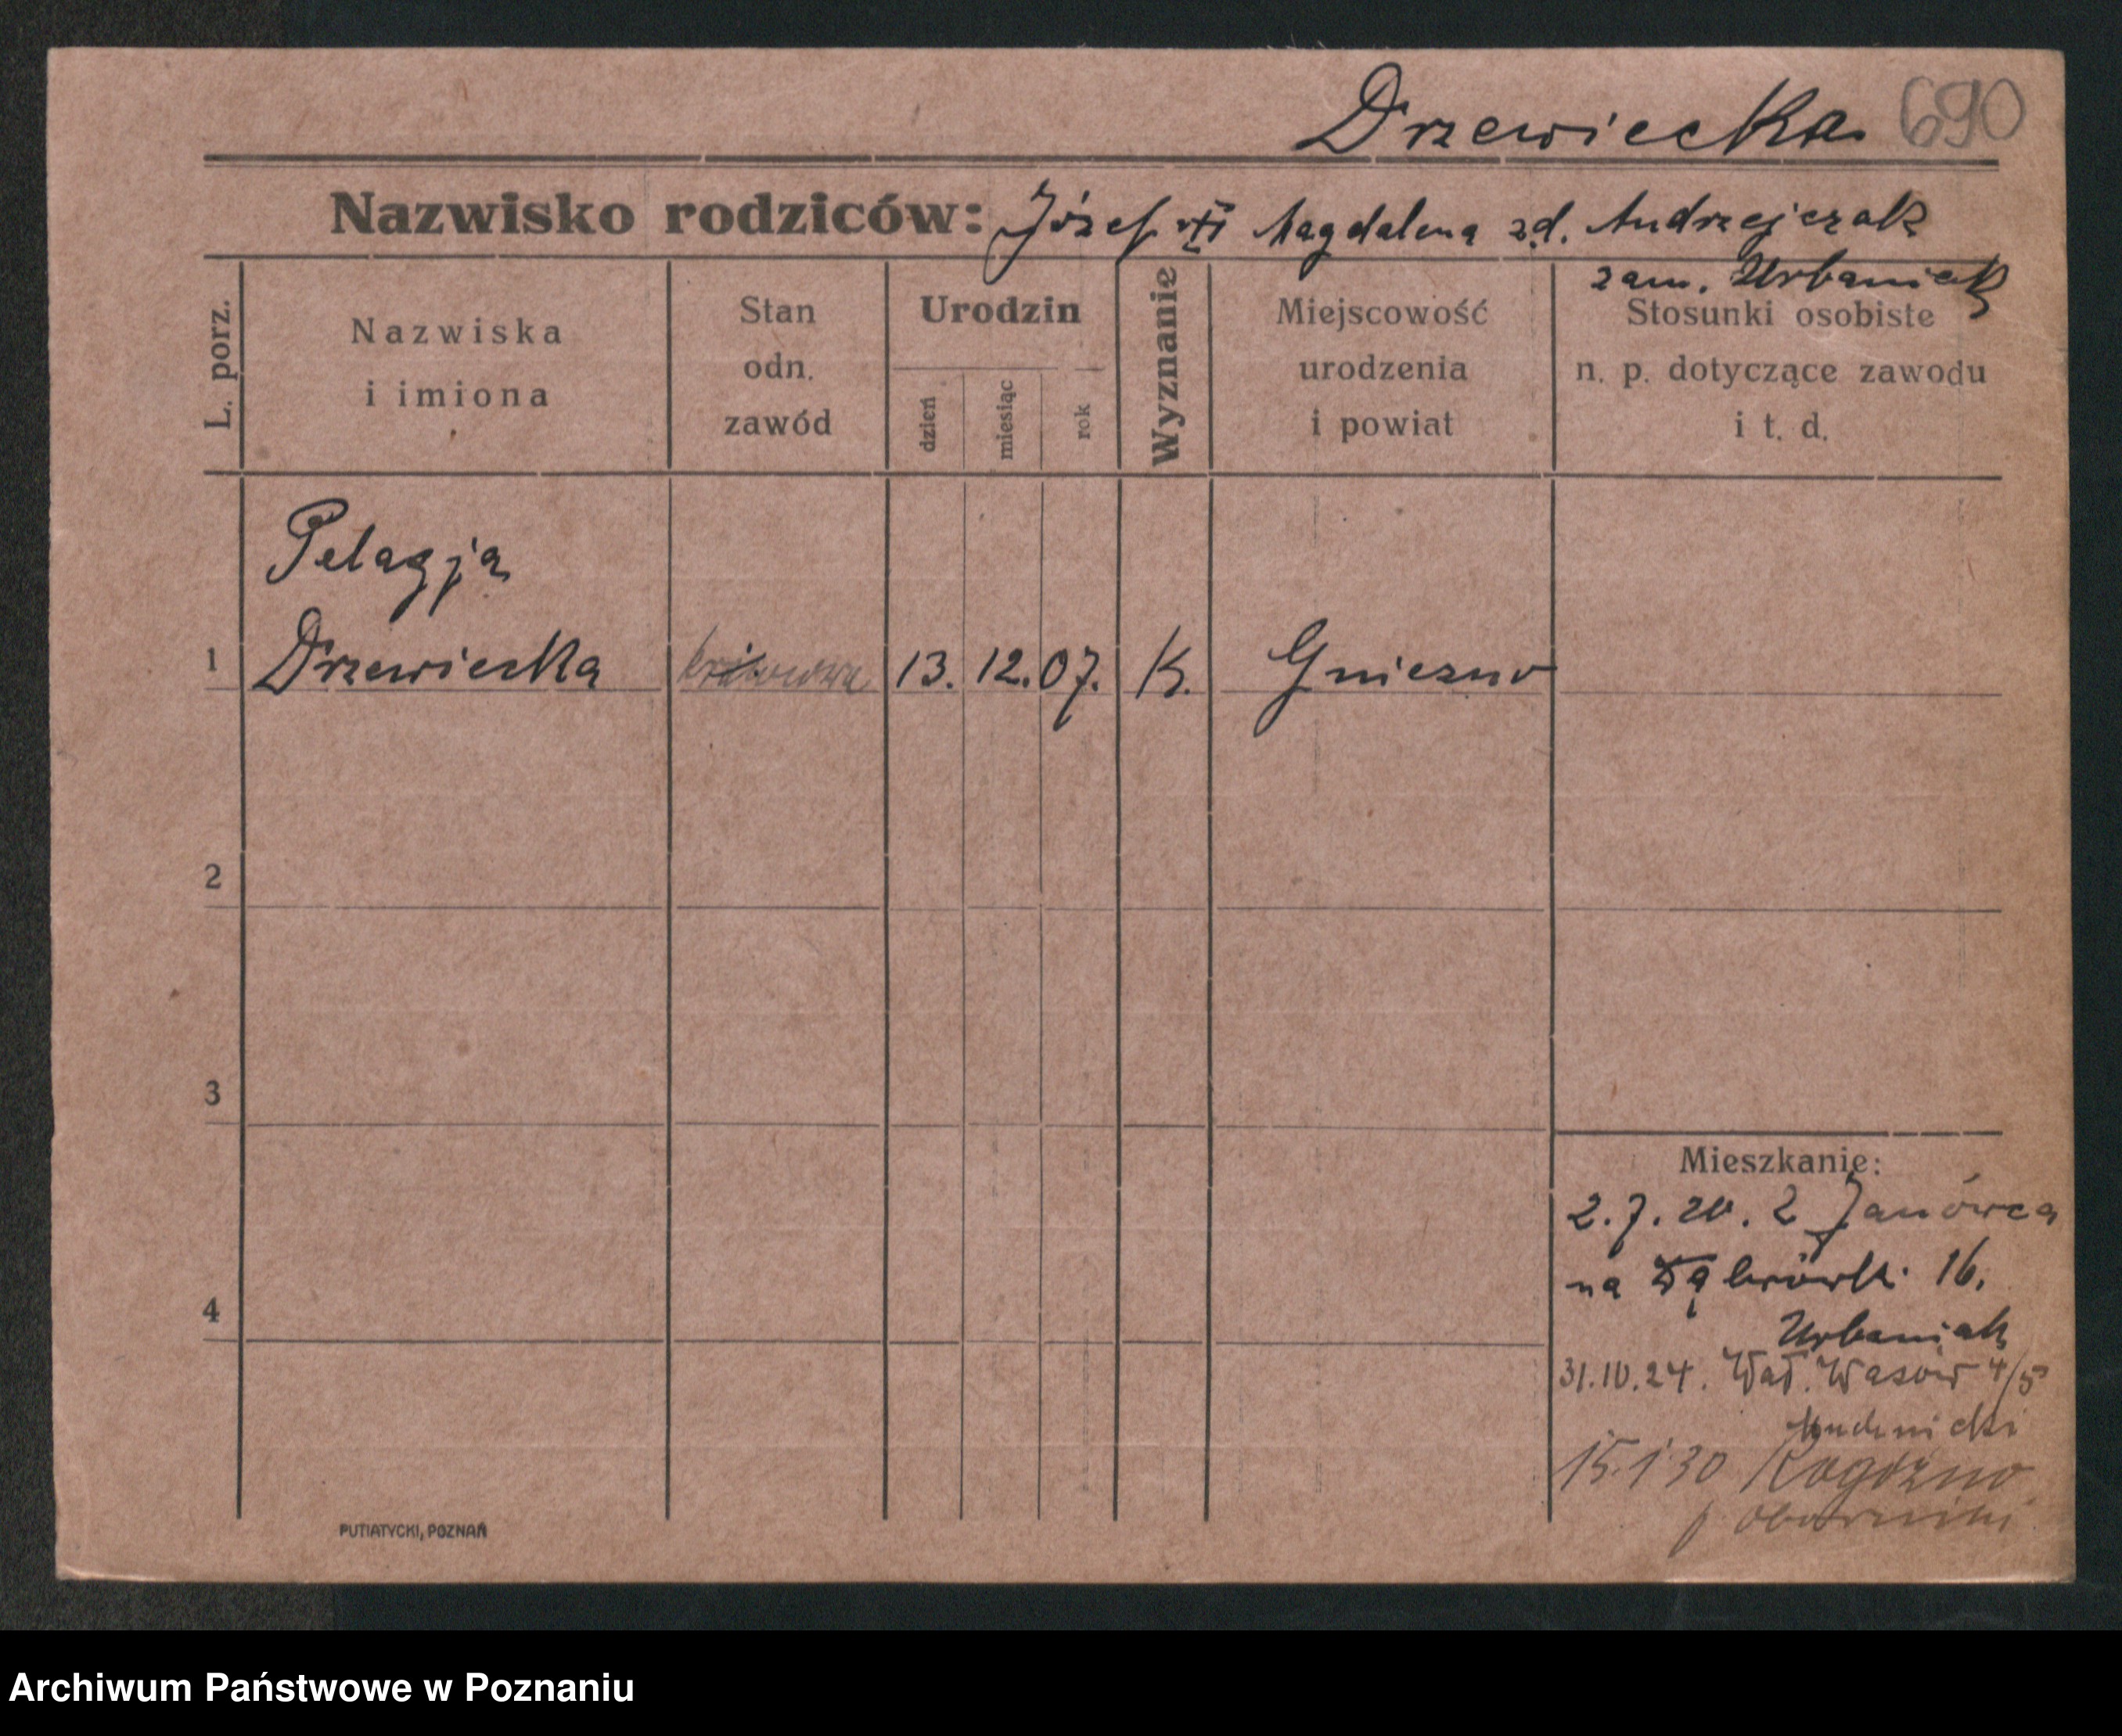 Drzewiecka 690
Nazwisko rodziców: Józef i Magdalena zd. Andrzejczak
zam. Urbaniak
L. porz.
Nazwiska
i imiona
Stan
odn.
zawód
Urodzin
dzień
miesiąc
rok
Wyznanie
Miejscowość
urodzenia
i powiat
Stosunki osobiste
n. p. dotyczące zawodu
i t. d.
Pelagja
1 Drzewiecka 13. 12. 07. K. Gniezno
2
3
4
Mieszkanie:
2.7.20. z Janówca
na Dąbrówki 16.
Urbaniak
31.10.24. Wał. 4/5
15.1 30 Rogoźno
p oborniki
PUTIATYCKI, POZNAŃ
Archiwum Państwowe w Poznaniu